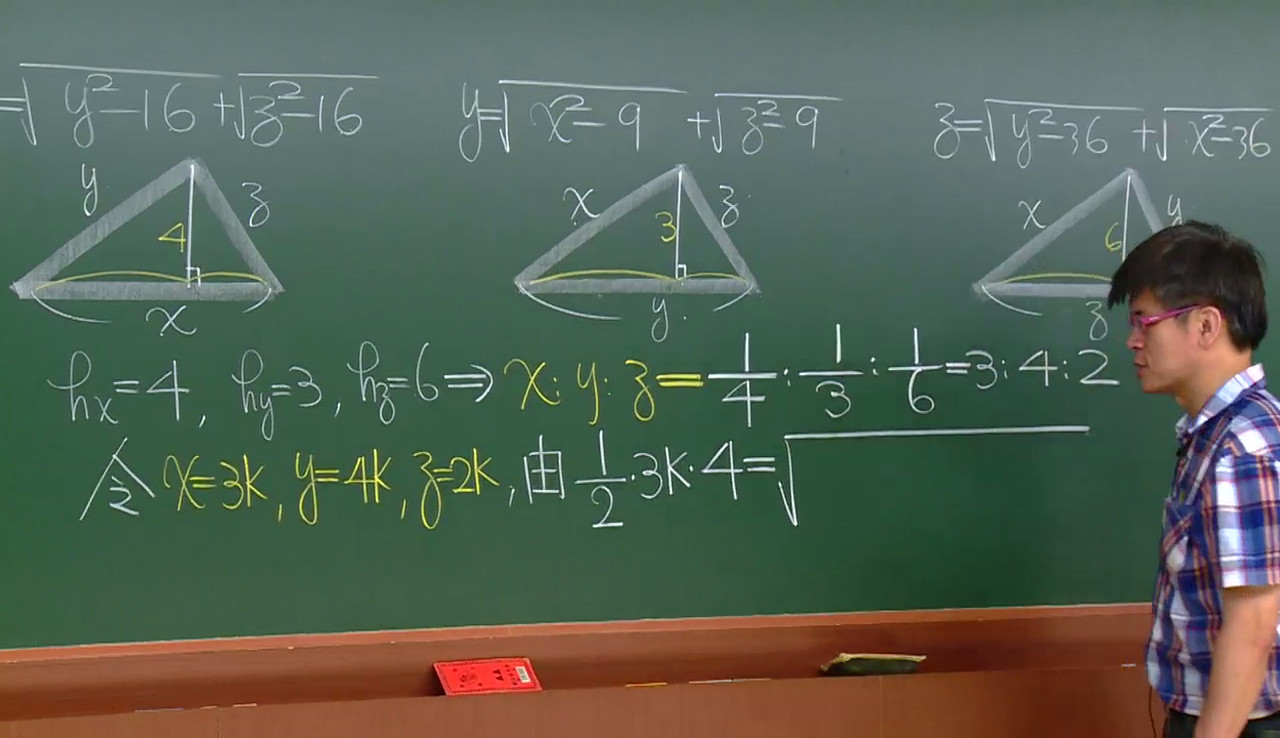 =√(y²-16) + √(z²-16)
y=√(x²-9) + √(z²-9)
z=√(y²-36) + √(x²-36)
y 4 z x
x 3 z y
x 6 y z
hx=4, hy=3, hz=6 ⇒ x:y:z = 1/4 : 1/3 : 1/6 = 3:4:2
令 x=3k, y=4k, z=2k, 由 1/2·3k·4=√